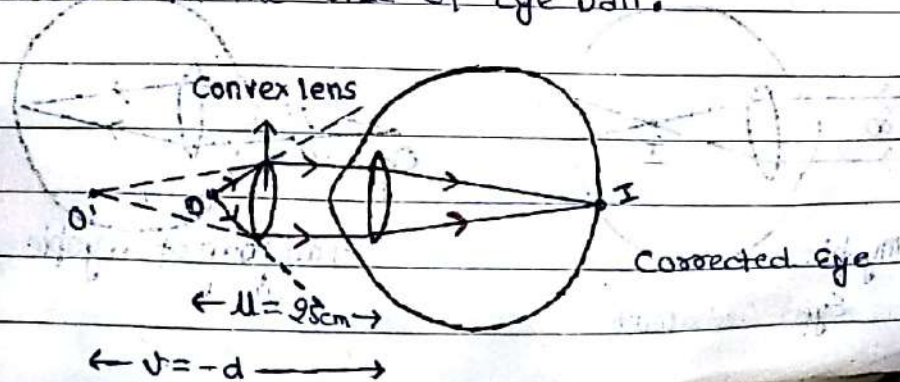 of Eye ball.
Convex lens
O'
O
I
Corrected Eye
← u = 25cm →
← v = -d →